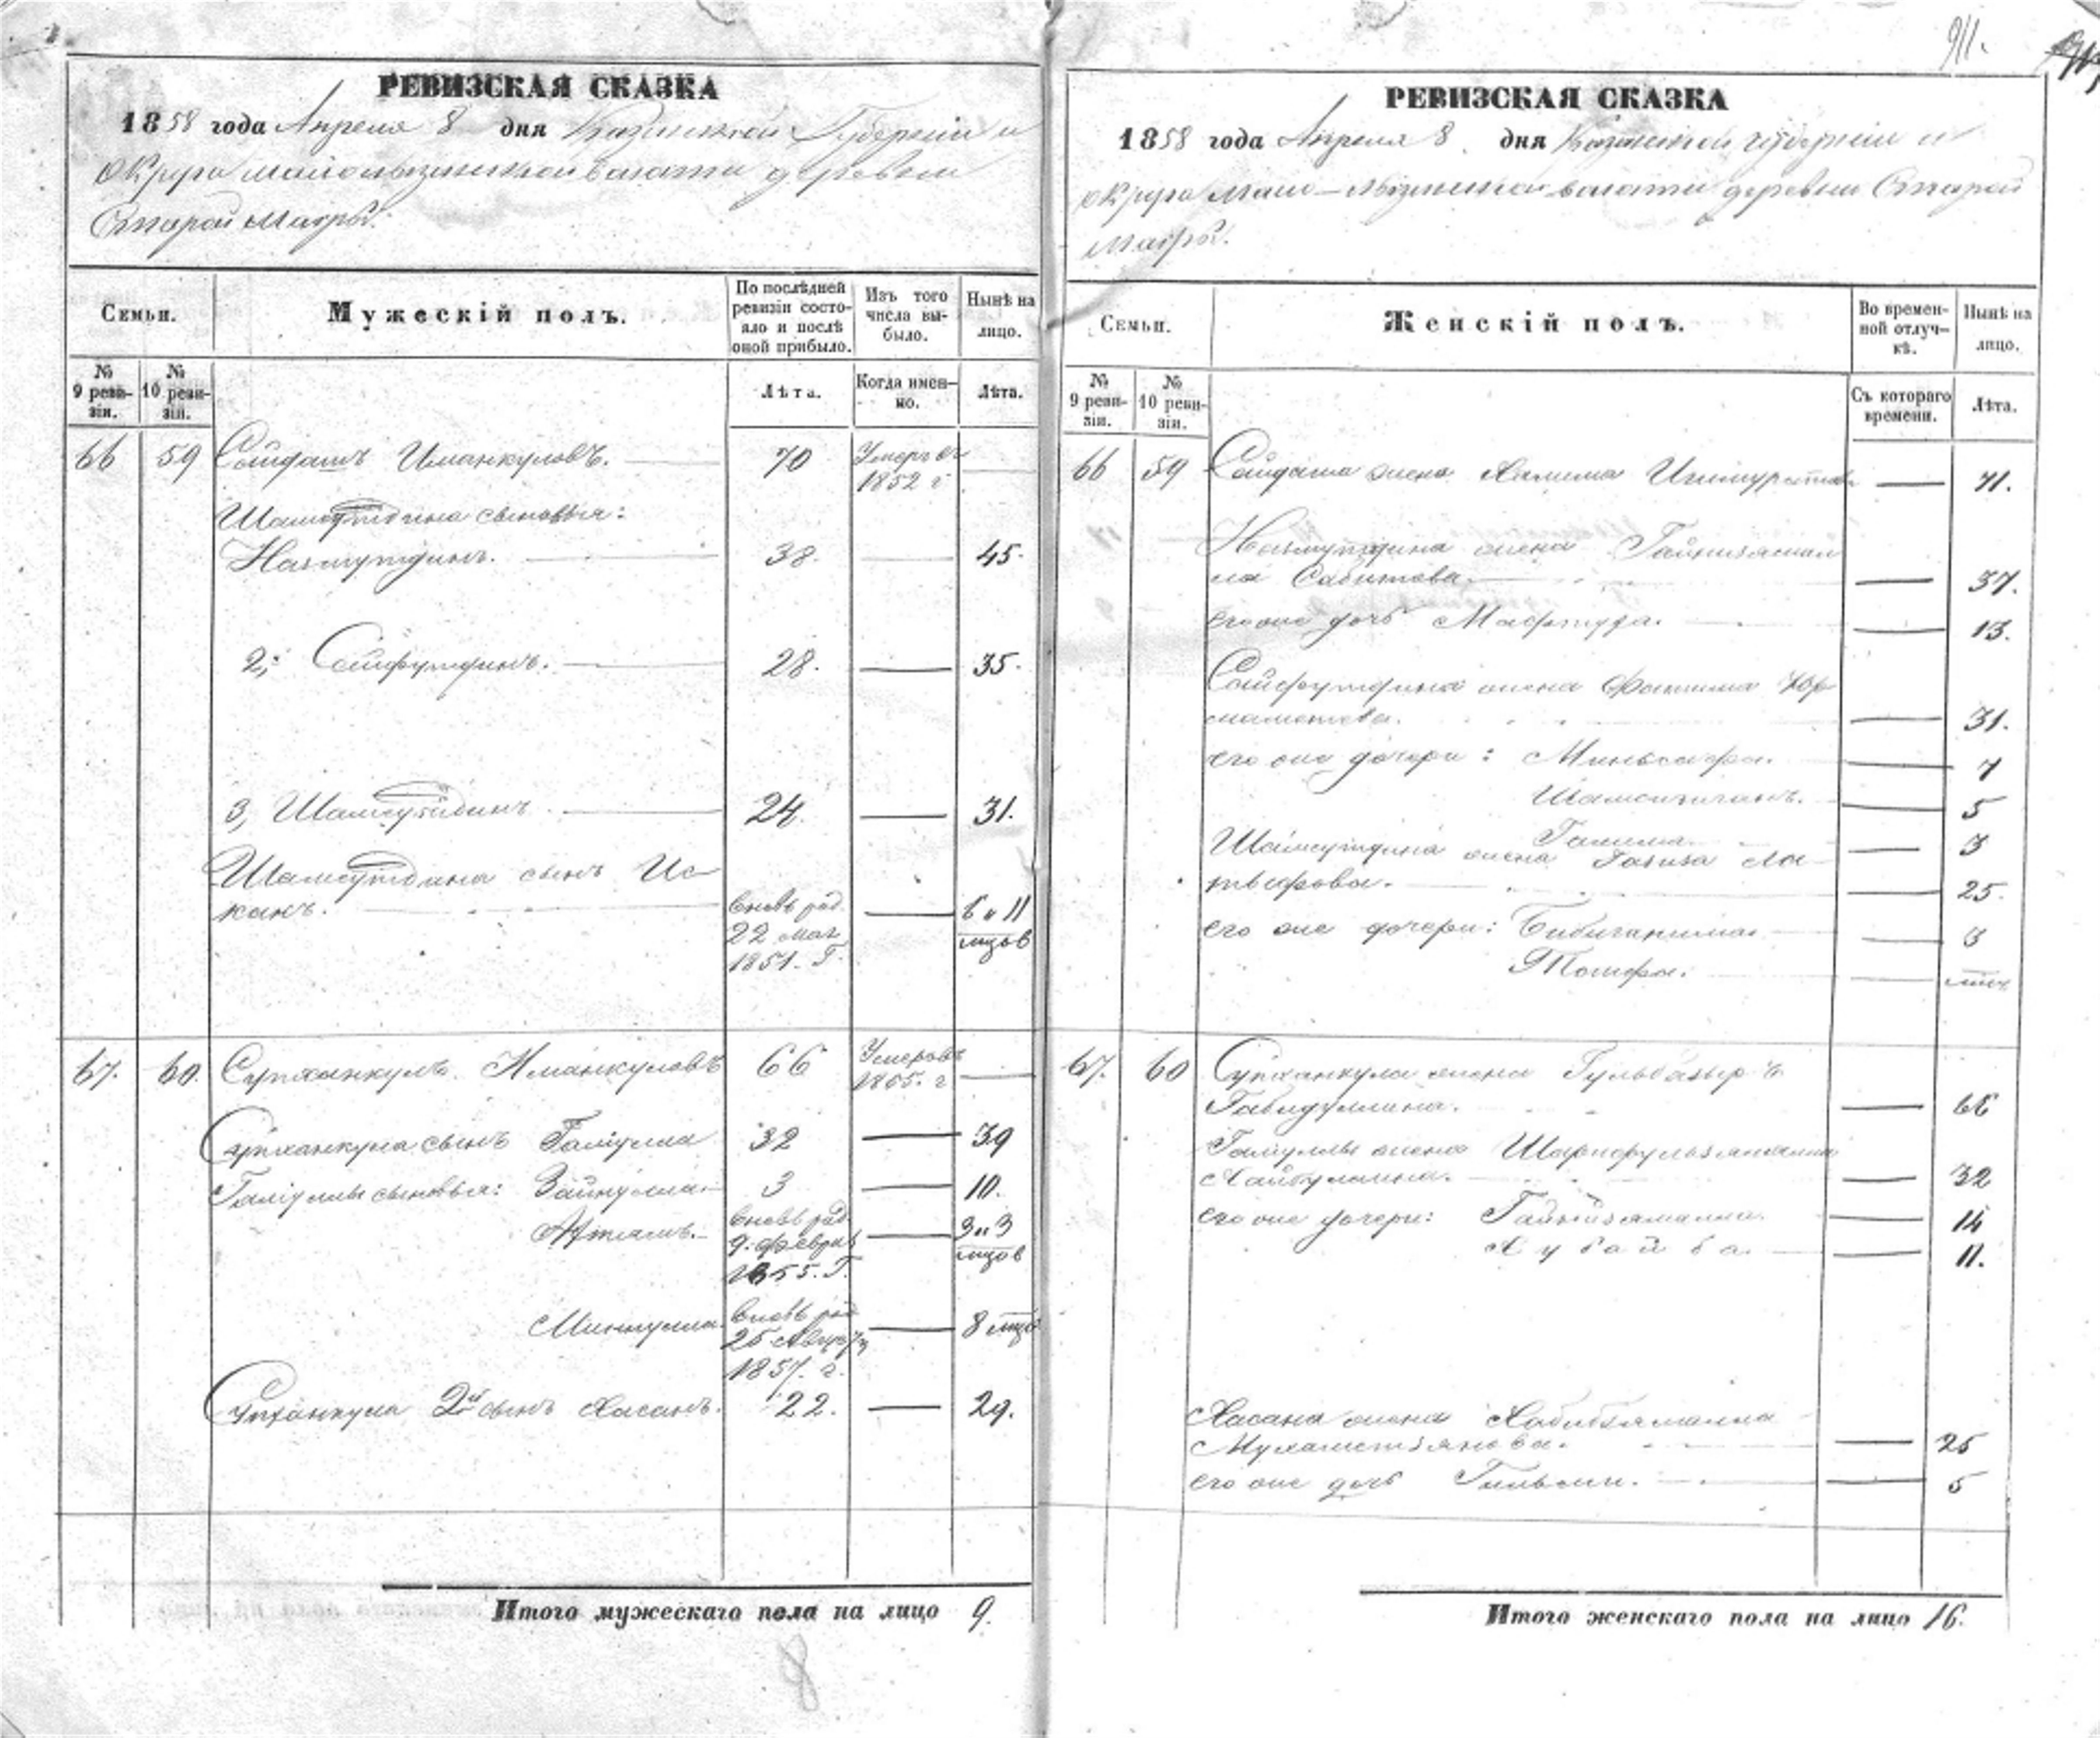 РЕВИЗСКАЯ СКАЗКА
1858 года Апреля 8 дня Казанской Губерніи и
округа волости деревни
Старой Масры.
Семьи.
Мужескій полъ.
По послѣдней ревизіи состояло и послѣ оной прибыло.
Изъ того числа выбыло.
Нынѣ на лицо.
№ 9 ревизіи.
№ 10 ревизіи.
Лѣта.
Когда именно.
Лѣта.
66 59 Сайдашъ Иманкуловъ. 70 Умеръ въ 1852 г
Шамсутдина сыновья:
Назмутдинъ. 38. 45.
2, Сайфутдинъ. 28. 35.
3, Шамсутдинъ 24. 31.
Шамсутдина сынъ Ис-
канъ. вновь род. 22 мая 1851. Г. 6 и 11 мцов
67. 60. Супханкулъ Иманкуловъ 66 Умеръ въ 1855. г
Супханкула сынъ Галіулла 32 39
Галіуллы сыновья: Зайнулла 3 10.
вновь род. 9. февра 1855. Г. 3 и 3 мцов
Миннулла. вновь род 25 Августа 1857. г. 8 мцов
Супханкула 2й сынъ Хасанъ. 22. 29.
Итого мужескаго пола на лицо 9.
8
911.
РЕВИЗСКАЯ СКАЗКА
1858 года Апреля 8 дня Казанской губерніи и
округа волости деревни Старой
Масры.
Семьи.
Женскій полъ.
Во временной отлучкѣ.
Нынѣ на лицо.
№ 9 ревизіи.
№ 10 ревизіи.
Съ котораго времени.
Лѣта.
66 59 Сайдаша жена Халима 71.
Назмутдина жена Гайнизамал
ла Сабитова. 37.
его же дочь 13.
Сайфутдина жена Фатима Юр
маметева. 31.
его же дочери: Миньсафа. 7
5
Галима 3
Шамсутдина жена Газиза Ла
тыфова. 25.
его же дочери: Бибиганима 3
67. 60 Супханкула жена Гульбазыръ
Габидуллина. 66
Галіуллы жена Шарифульзямалла
Хайбуллина. 32
его же дочери: Гайнизямалла 14
Хубайба. 11.
Хасана жена Хабибзямалла
Мухаметзянова. 25
его же дочь 5
Итого женскаго пола на лицо 16.